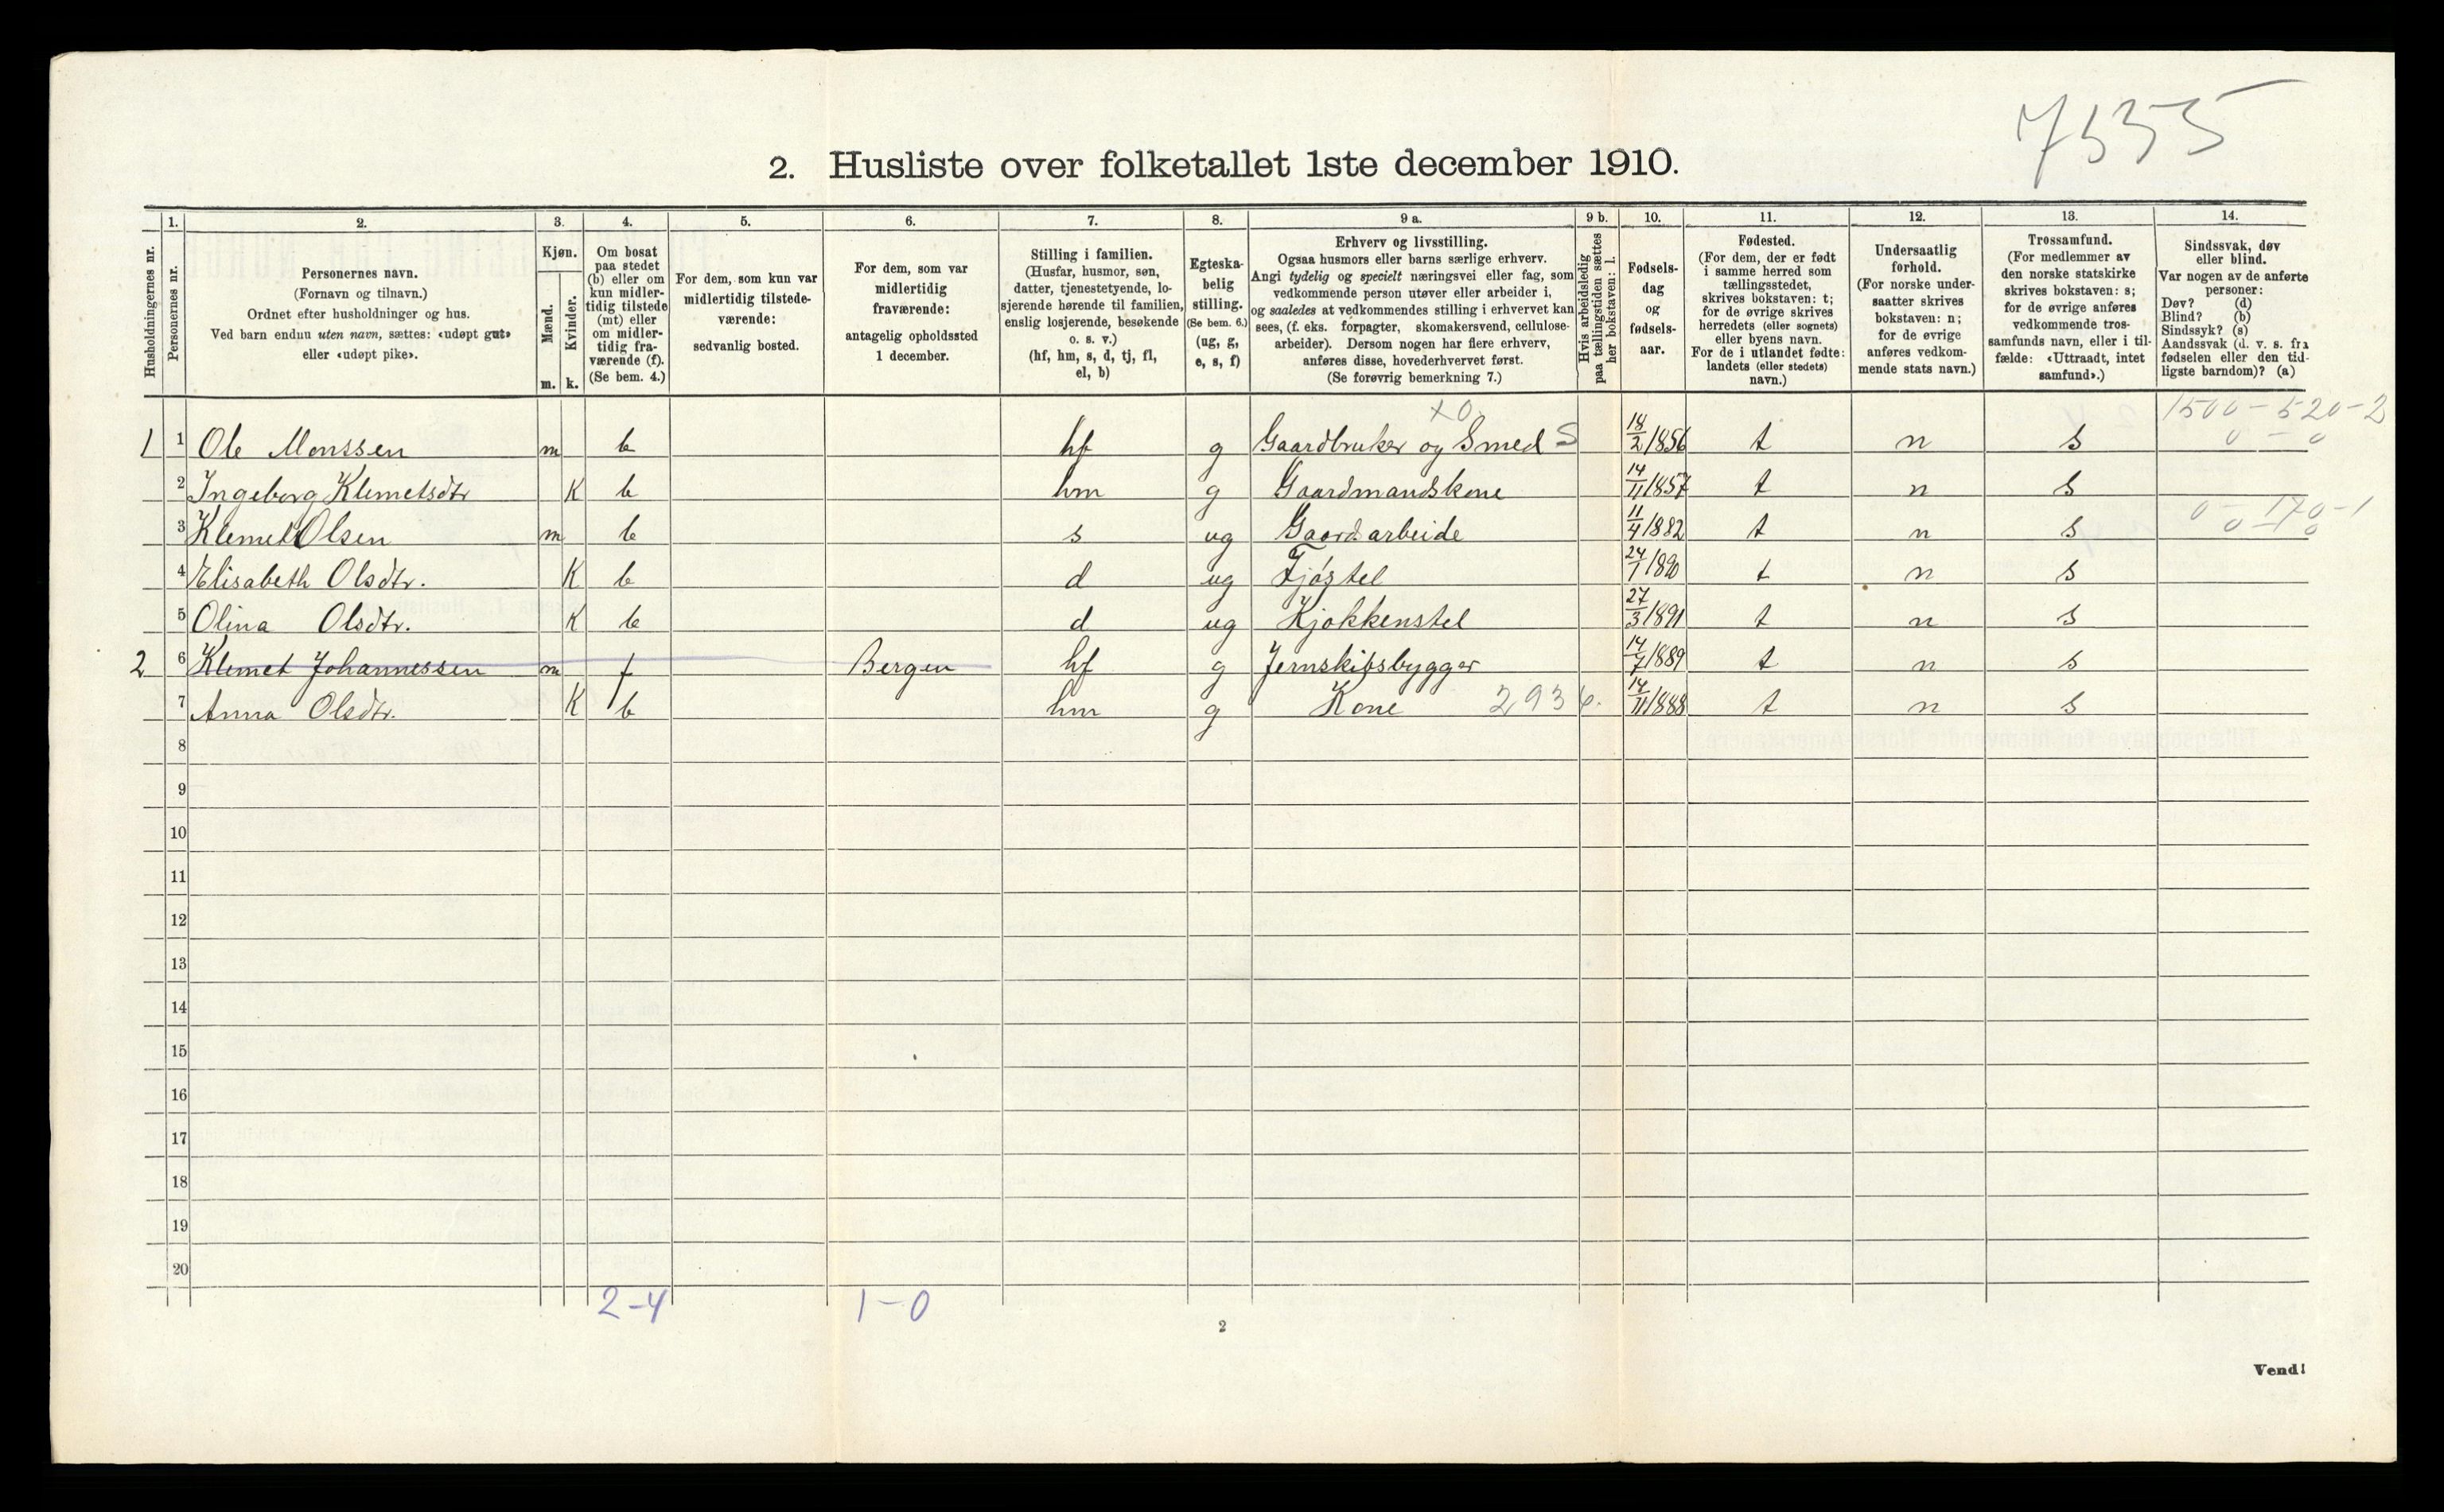 7535
2. Husliste over folketallet 1ste december 1910.
Husholdningernes nr.
1.
Personernes nr.
2.
Personernes navn.
(Fornavn og tilnavn.)
Ordnet efter husholdninger og hus.
Ved barn endnu uten navn, sættes: «udøpt gut»
eller «udøpt pike».
3.
Kjøn.
Mænd.
Kvinder.
m. k.
4.
Om bosat
paa stedet
(b) eller om
kun midler-
tidig tilstede
(mt) eller
om midler-
tidig fra-
værende (f).
(Se bem. 4.)
5.
For dem, som kun var
midlertidig tilstede-
værende:
sedvanlig bosted.
6.
For dem, som var
midlertidig
fraværende:
antagelig opholdssted
1 december.
7.
Stilling i familien.
(Husfar, husmor, søn,
datter, tjenestetyende, lo-
sjerende hørende til familien,
enslig losjerende, besøkende
o. s. v.)
(hf, hm, s, d, tj, fl,
el, b)
8.
Egteska-
belig
stilling.
(Se bem. 6.)
(ug, g,
e, s, f)
9 a.
Erhverv og livsstilling.
Ogsaa husmors eller barns særlige erhverv.
Angi tydelig og specielt næringsvei eller fag, som
vedkommende person utøver eller arbeider i,
og saaledes at vedkommendes stilling i erhvervet kan
sees, (f. eks. forpagter, skomakersvend, cellulose-
arbeider). Dersom nogen har flere erhverv,
anføres disse, hovederhvervet først.
(Se forøvrig bemerkning 7.)
9 b.
Hvis arbeidsledig
paa tællingstiden sættes
her bokstaven: l.
10.
Fødsels-
dag
og
fødsels-
aar.
11.
Fødested.
(For dem, der er født
i samme herred som
tællingsstedet,
skrives bokstaven: t;
for de øvrige skrives
herredets (eller sognets)
eller byens navn.
For de i utlandet fødte:
landets (eller stedets)
navn.)
12.
Undersaatlig
forhold.
(For norske under-
saatter skrives
bokstaven: n;
for de øvrige
anføres vedkom-
mende stats navn.)
13.
Trossamfund.
(For medlemmer av
den norske statskirke
skrives bokstaven: s;
for de øvrige anføres
vedkommende tros-
samfunds navn, eller i til-
fælde: «Uttraadt, intet
samfund».)
14.
Sindssvak, døv
eller blind.
Var nogen av de anførte
personer:
Døv? (d)
Blind? (b)
Sindssyk? (s)
Aandssvak (d. v. s. fra
fødselen eller den tid-
ligste barndom)? (a)
x0 1500-520-2
1 1 Ole Monssen m b hf g Gaardbruker og Smed S 18/2 1856 t n s 0-0
2 Ingeborg Klemetsdtr K b hm g Gaardmandskone 14/11 1857 t n s
3 Klemet Olsen m b s ug Gaardarbeide 11/4 1882 t n s 0-170-1
0-0
4 Elisabeth Olsdtr. K b d ug Fjøstel 24/1 1890 t n s
5 Olina Olsdtr. K b d ug Kjøkkenstel 27/3 1891 t n s
2 6 Klemet Johannessen m f Bergen hf g Jernskibsbygger 14/7 1889 t n s
7 Anna Olsdtr. K b hm g Kone 2936. 14/11 1888 t n s
8
9
10
11
12
13
14
15
16
17
18
19
20
2-4 1-0
2
Vend!